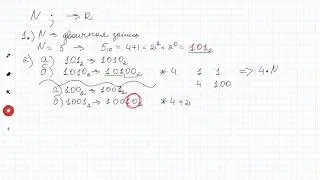 N ; → R
1.) N → двоичная запись
N = 5 → 5₁₀ = 4+1 = 2²+2⁰ = 101₂
2) а) 101₂ → 1010₂
б) 1010₂ → 10100₂ * 4 1 1 => 4·N
4 100
а) 100₂ → 1001₂
б) 1001₂ → 100110₂ * 4 + 2